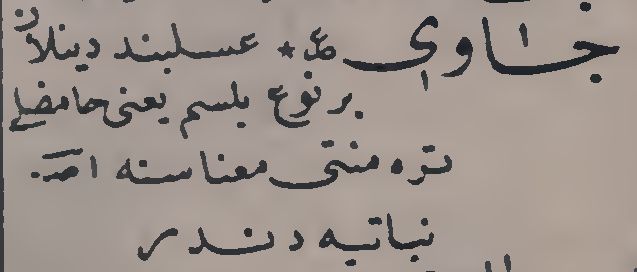 جاوی عـ * عسلبند دینلان
بر نوع بلسم یعنی حامضلی
تره منتی معناسنه اصـ.
نباتیه دندر